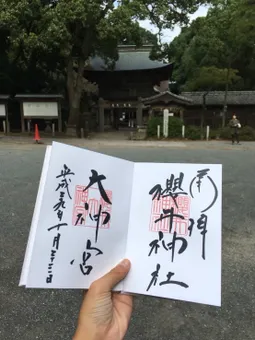 奉拝
櫻井神社
大神宮
平成二九年十月二十三日